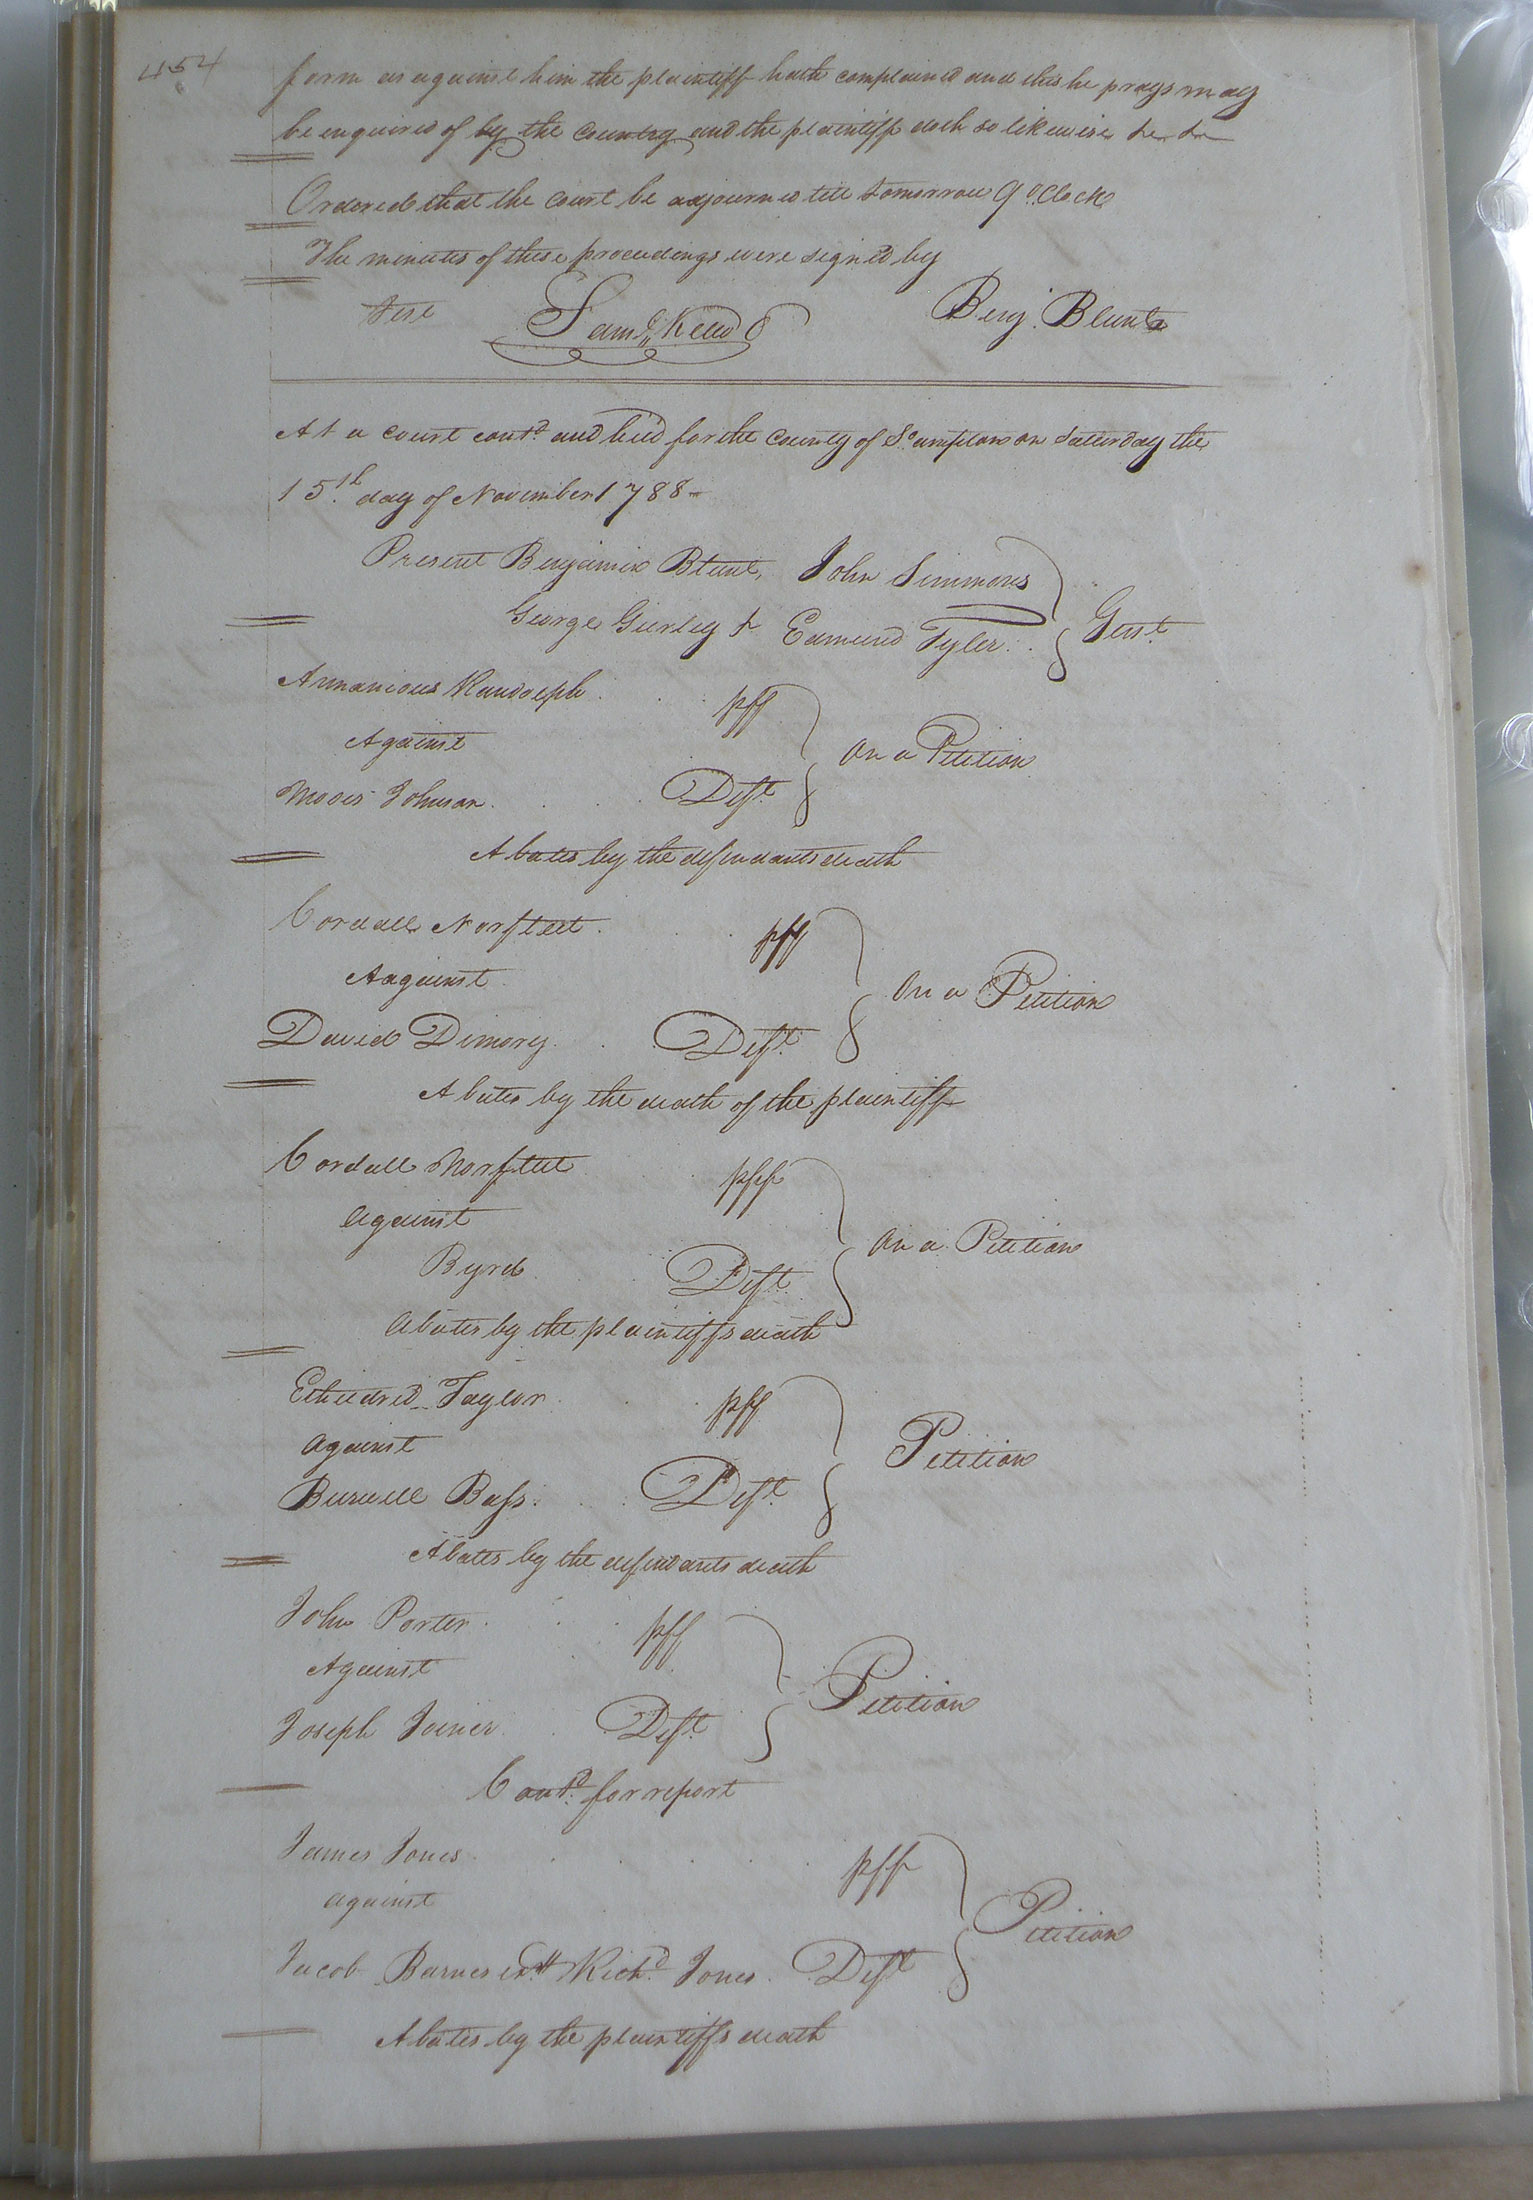 454
form as against him the plaintiff hath complained and this he prays may
be enquired of by the Country and the plaintiff doth so likewise &c &c
Ordered that the court be adjourned till tomorrow 9 oClock
The minutes of these proceedings were signed by
Test Saml. Kello Benj. Blunt
At a court contd. and held for the County of So.ampton on Satturday the
15th. day of November 1788
Present Benjamin Blunt, John Simmons
George Gurley & Edmund Tyler Gent.
Annanious Randolph pff
Against On a Petition
Moses Johnson Deft.
Abates by the defendants death
Cordall Norfleet pff
Aagainst On a Petition
David Dimory Deft.
Abates by the death of the plaintiff
Cordall Norfleet pff
against On a Petition
Byrd Deft.
Abates by the plaintiffs death
Etheldred Taylor pff
against Petition
Burwell Bass Deft.
Abates by the defendants death
John Porter pff
Against Petition
Joseph Joiner Deft.
Contd. for report
James Jones pff
against Petition
Jacob Barnes Richd. Jones Deft
Abates by the plaintiffs death